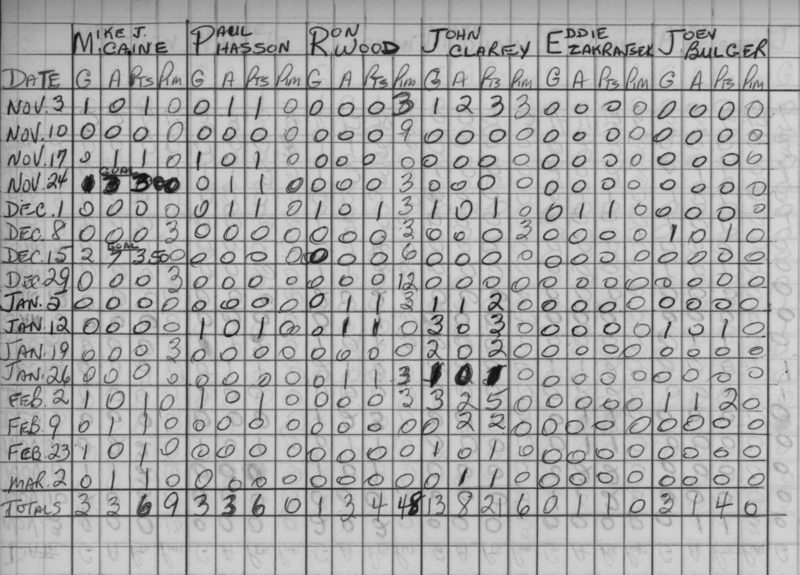 MIKE J. PAUL RON JOHN EDDIE JOEY
McCAINE HASSON WOOD CLAREY ZAKRAJSEK BULGER
DATE G A PTS PIM G A PTS PIM G A PTS PIM G A PTS PIM G A PTS PIM G A PTS PIM
NOV. 3 1 0 1 0 0 1 1 0 0 0 0 3 1 2 3 3 0 0 0 0 0 0 0 0
NOV. 10 0 0 0 0 0 0 0 0 0 0 0 9 0 0 0 0 0 0 0 0 0 0 0 0
NOV. 17 0 1 1 0 1 0 1 0 0 0 0 0 0 0 0 0 0 0 0 0 0 0 0 0
GOAL
NOV. 24 3 3 0 0 1 1 0 0 0 0 3 0 0 0 0 0 0 0 0 0 0 0 0
DEC. 1 0 0 0 0 0 1 1 0 1 0 1 3 1 0 1 0 0 1 1 0 0 0 0 0
DEC. 8 0 0 0 3 0 0 0 0 0 0 0 3 0 0 0 3 0 0 0 0 1 0 1 0
GOAL
DEC. 15 2 7 3.50 0 0 0 0 0 0 0 6 0 0 0 0 0 0 0 0 0 0 0 0
DEC. 29 0 0 0 3 0 0 0 0 0 0 0 12 0 0 0 0 0 0 0 0 0 0 0 0
JAN. 5 0 0 0 0 0 0 0 0 0 1 1 3 1 1 2 0 0 0 0 0 0 0 0 0
JAN. 12 0 0 0 0 1 0 1 0 0 1 1 0 3 0 3 0 0 0 0 0 1 0 1 0
JAN. 19 0 0 0 3 0 0 0 0 0 0 0 0 2 0 2 0 0 0 0 0 0 0 0 0
JAN. 26 0 0 0 0 0 0 0 0 0 1 1 3 1 0 1 0 0 0 0 0 0 0 0 0
FEB. 2 1 0 1 0 1 0 1 0 0 0 0 3 3 2 5 0 0 0 0 0 1 1 2 0
FEB. 9 0 1 1 0 0 0 0 0 0 0 0 0 0 2 2 0 0 0 0 0 0 0 0 0
FEB. 23 1 0 1 0 0 0 0 0 0 0 0 0 1 0 1 0 0 0 0 0 0 0 0 0
MAR. 2 0 1 1 0 0 0 0 0 0 0 0 0 0 1 1 0 0 0 0 0 0 0 0 0
TOTALS 3 3 6 9 3 3 6 0 1 3 4 48 13 8 21 6 0 1 1 0 3 1 4 0